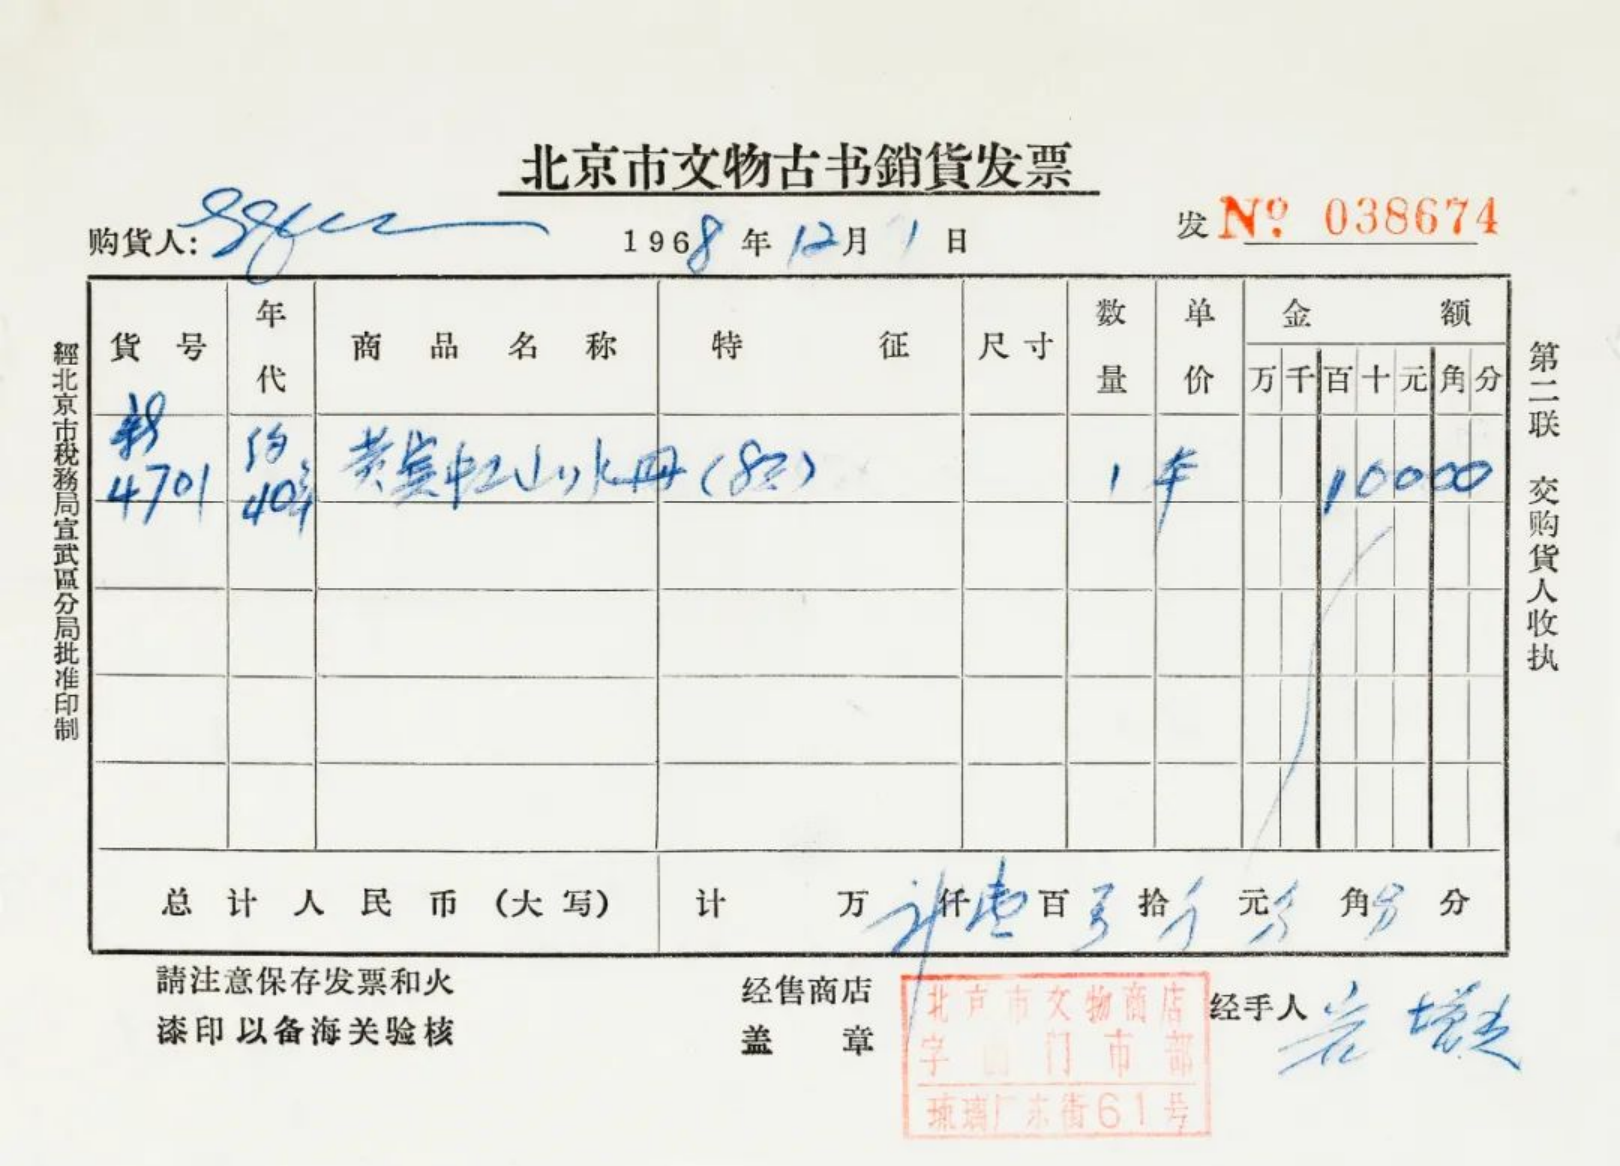 北京市文物古书銷貨发票
购貨人:
1968年12月1日
发 № 038674
貨号 年代 商品名称 特征 尺寸 数量 单价 金额
万 千 百 十 元 角 分
新4701 约40年 黄宾虹山水册(8页) 1 本 10000
总计人民币(大写) 计 万 仟 壹 百 零 拾 元 角 分
請注意保存发票和火
漆印以备海关验核
经售商店
盖章
北京市文物商店
字画门市部
琉璃厂东街61号
经手人
經北京市税務局宣武區分局批准印制
第二联 交购貨人收执